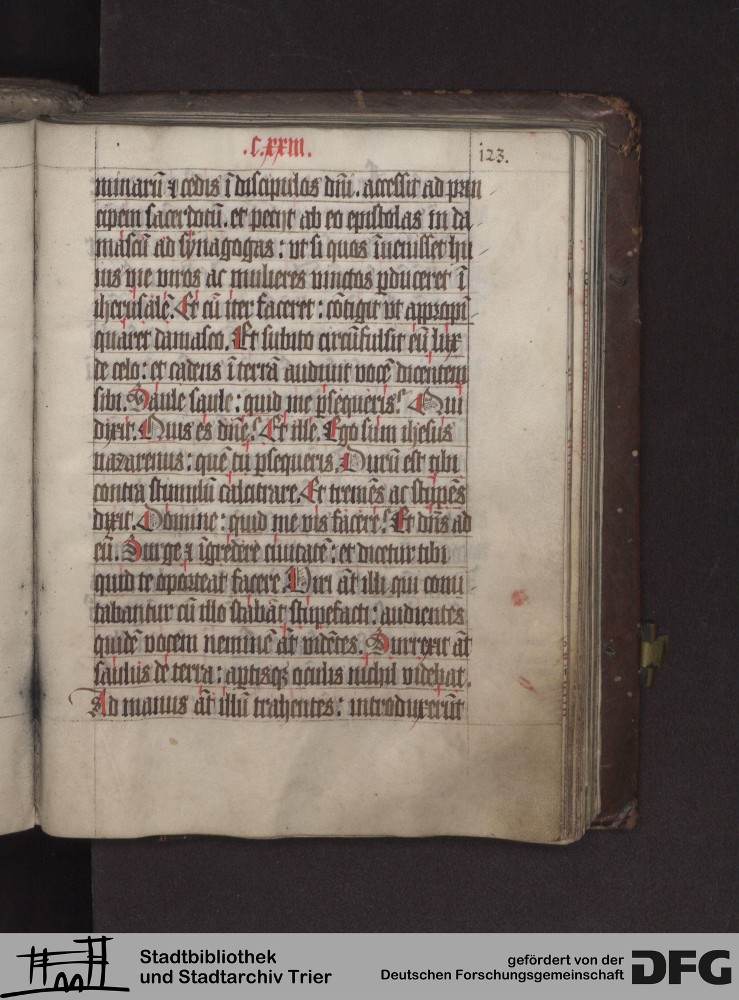 .C.xxiii.
123.
minarū ⁊ cedis ī discipulos dn̄i. accessit ad prin
cipem sacerdotū. et petijt ab eo epistolas in da
mascū ad synagogas: vt si quos īuenisset hu
ius vie viros ac mulieres vinctos ꝑduceret ī
iherusalē. Et cū iter faceret: cōtigit vt appropī
quaret damasco. Et subito circūfulsit eū lux
de celo: et cadens ī terrā audiuit vocē dicentem
sibi. Saule saule: quid me ꝑsequeris? Qui
dixit. Quis es dn̄e? Et ille. Ego sum ihesus
nazarenus: quē tu ꝑsequeris. Durū est tibi
contra stimulū calcitrare. Et tremēs ac stupēs
dixit. Domine: quid me vis facere? Et dn̄s ad
eū. Surge ⁊ īgredere ciuitatē: et dicetur tibi
quid te oporteat facere. Viri āt illi qui comi
tabantur cū illo stabāt stupefacti: audientes
quidē vocem neminē āt vidētes. Surrexit āt
saulus de terra: aꝑtisqꝫ oculis nichil videbat.
Ad manus āt illū trahentes: introduxerūt
Stadtbibliothek
und Stadtarchiv Trier
gefördert von der
Deutschen Forschungsgemeinschaft
DFG